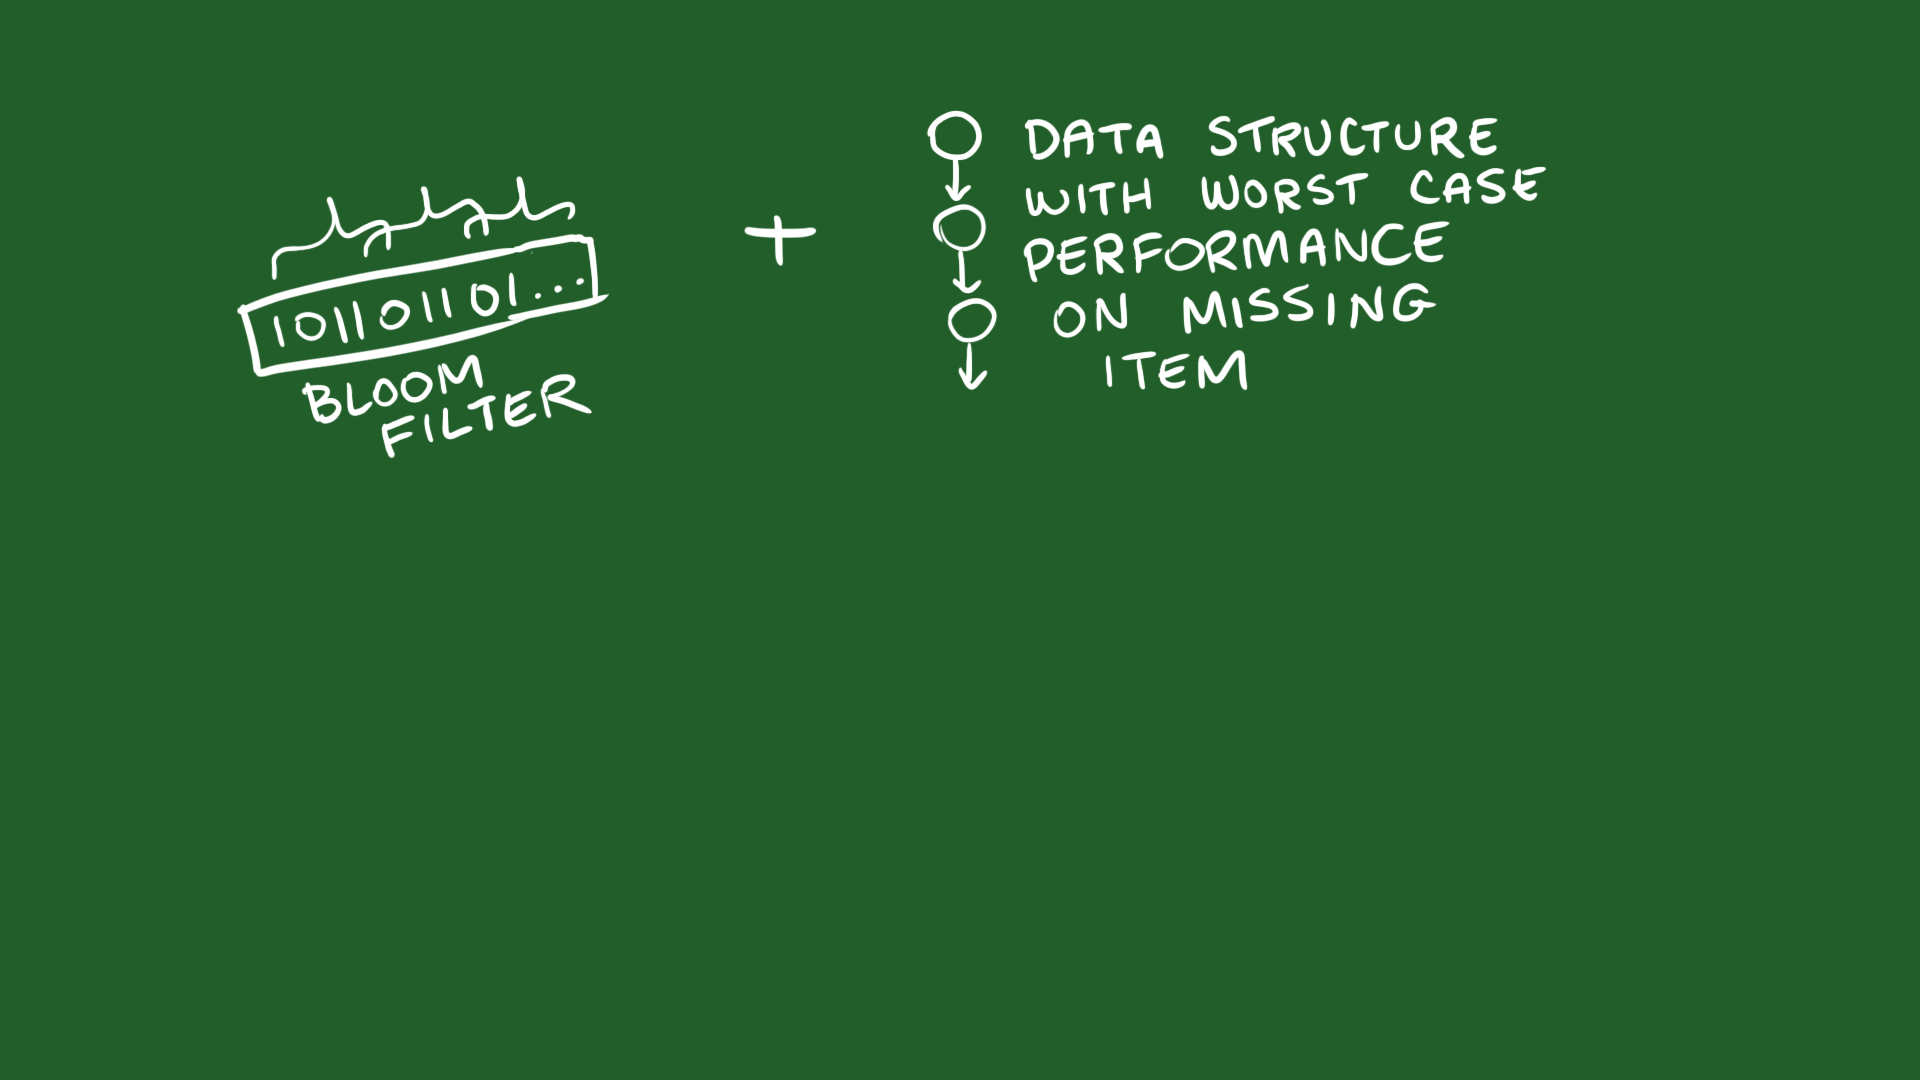 101101101...
BLOOM
FILTER
+
DATA STRUCTURE
WITH WORST CASE
PERFORMANCE
ON MISSING
ITEM